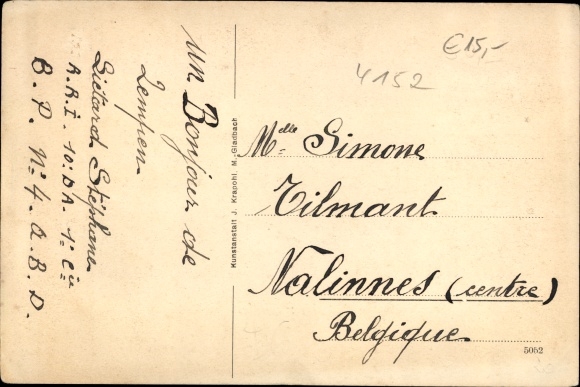 un Bonjour de
Kempen
Liétard Stéphane
A.R.I. 10. D A. 1° Cie
B. P. N° 4. A. B. D.
Kunstanstalt J. Krapohl, M.-Gladbach
€15,-
4152
Melle Simone
Tilmant
Nalinnes (centre)
Belgique
5052